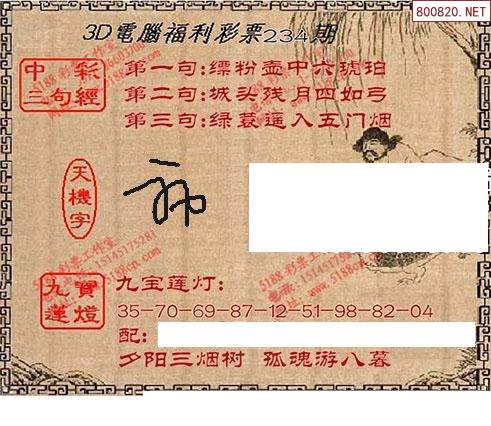 800820.NET
3D電腦福利彩票234期
中彩
三句經
第一句:缥粉壶中六琥珀
第二句:城头残月四如弓
第三句:绿蓑遥入五门烟
天機字
九寶
蓮燈
九宝莲灯:
35-70-69-87-12-51-98-82-04
配:
夕阳三烟树 孤魂游八暮